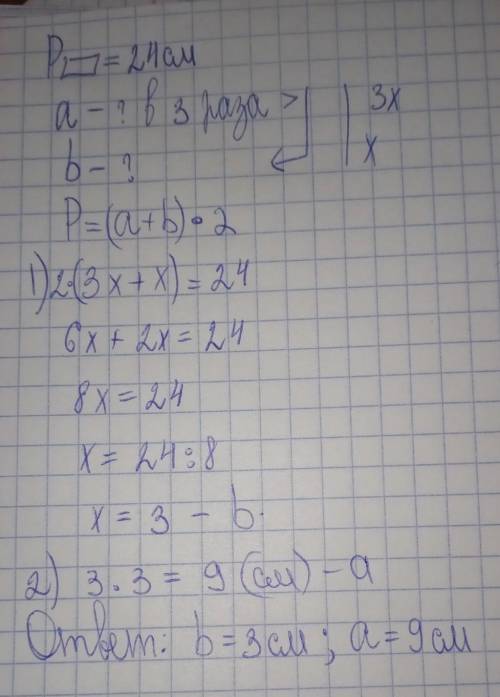 P▭ = 24 см
a - ? в 3 раза > | 3x
b - ? | x
P = (a + b) • 2
1) 2·(3x + x) = 24
6x + 2x = 24
8x = 24
x = 24 : 8
x = 3 - b.
2) 3 · 3 = 9 (см) - a
Ответ: b = 3 см ; a = 9 см